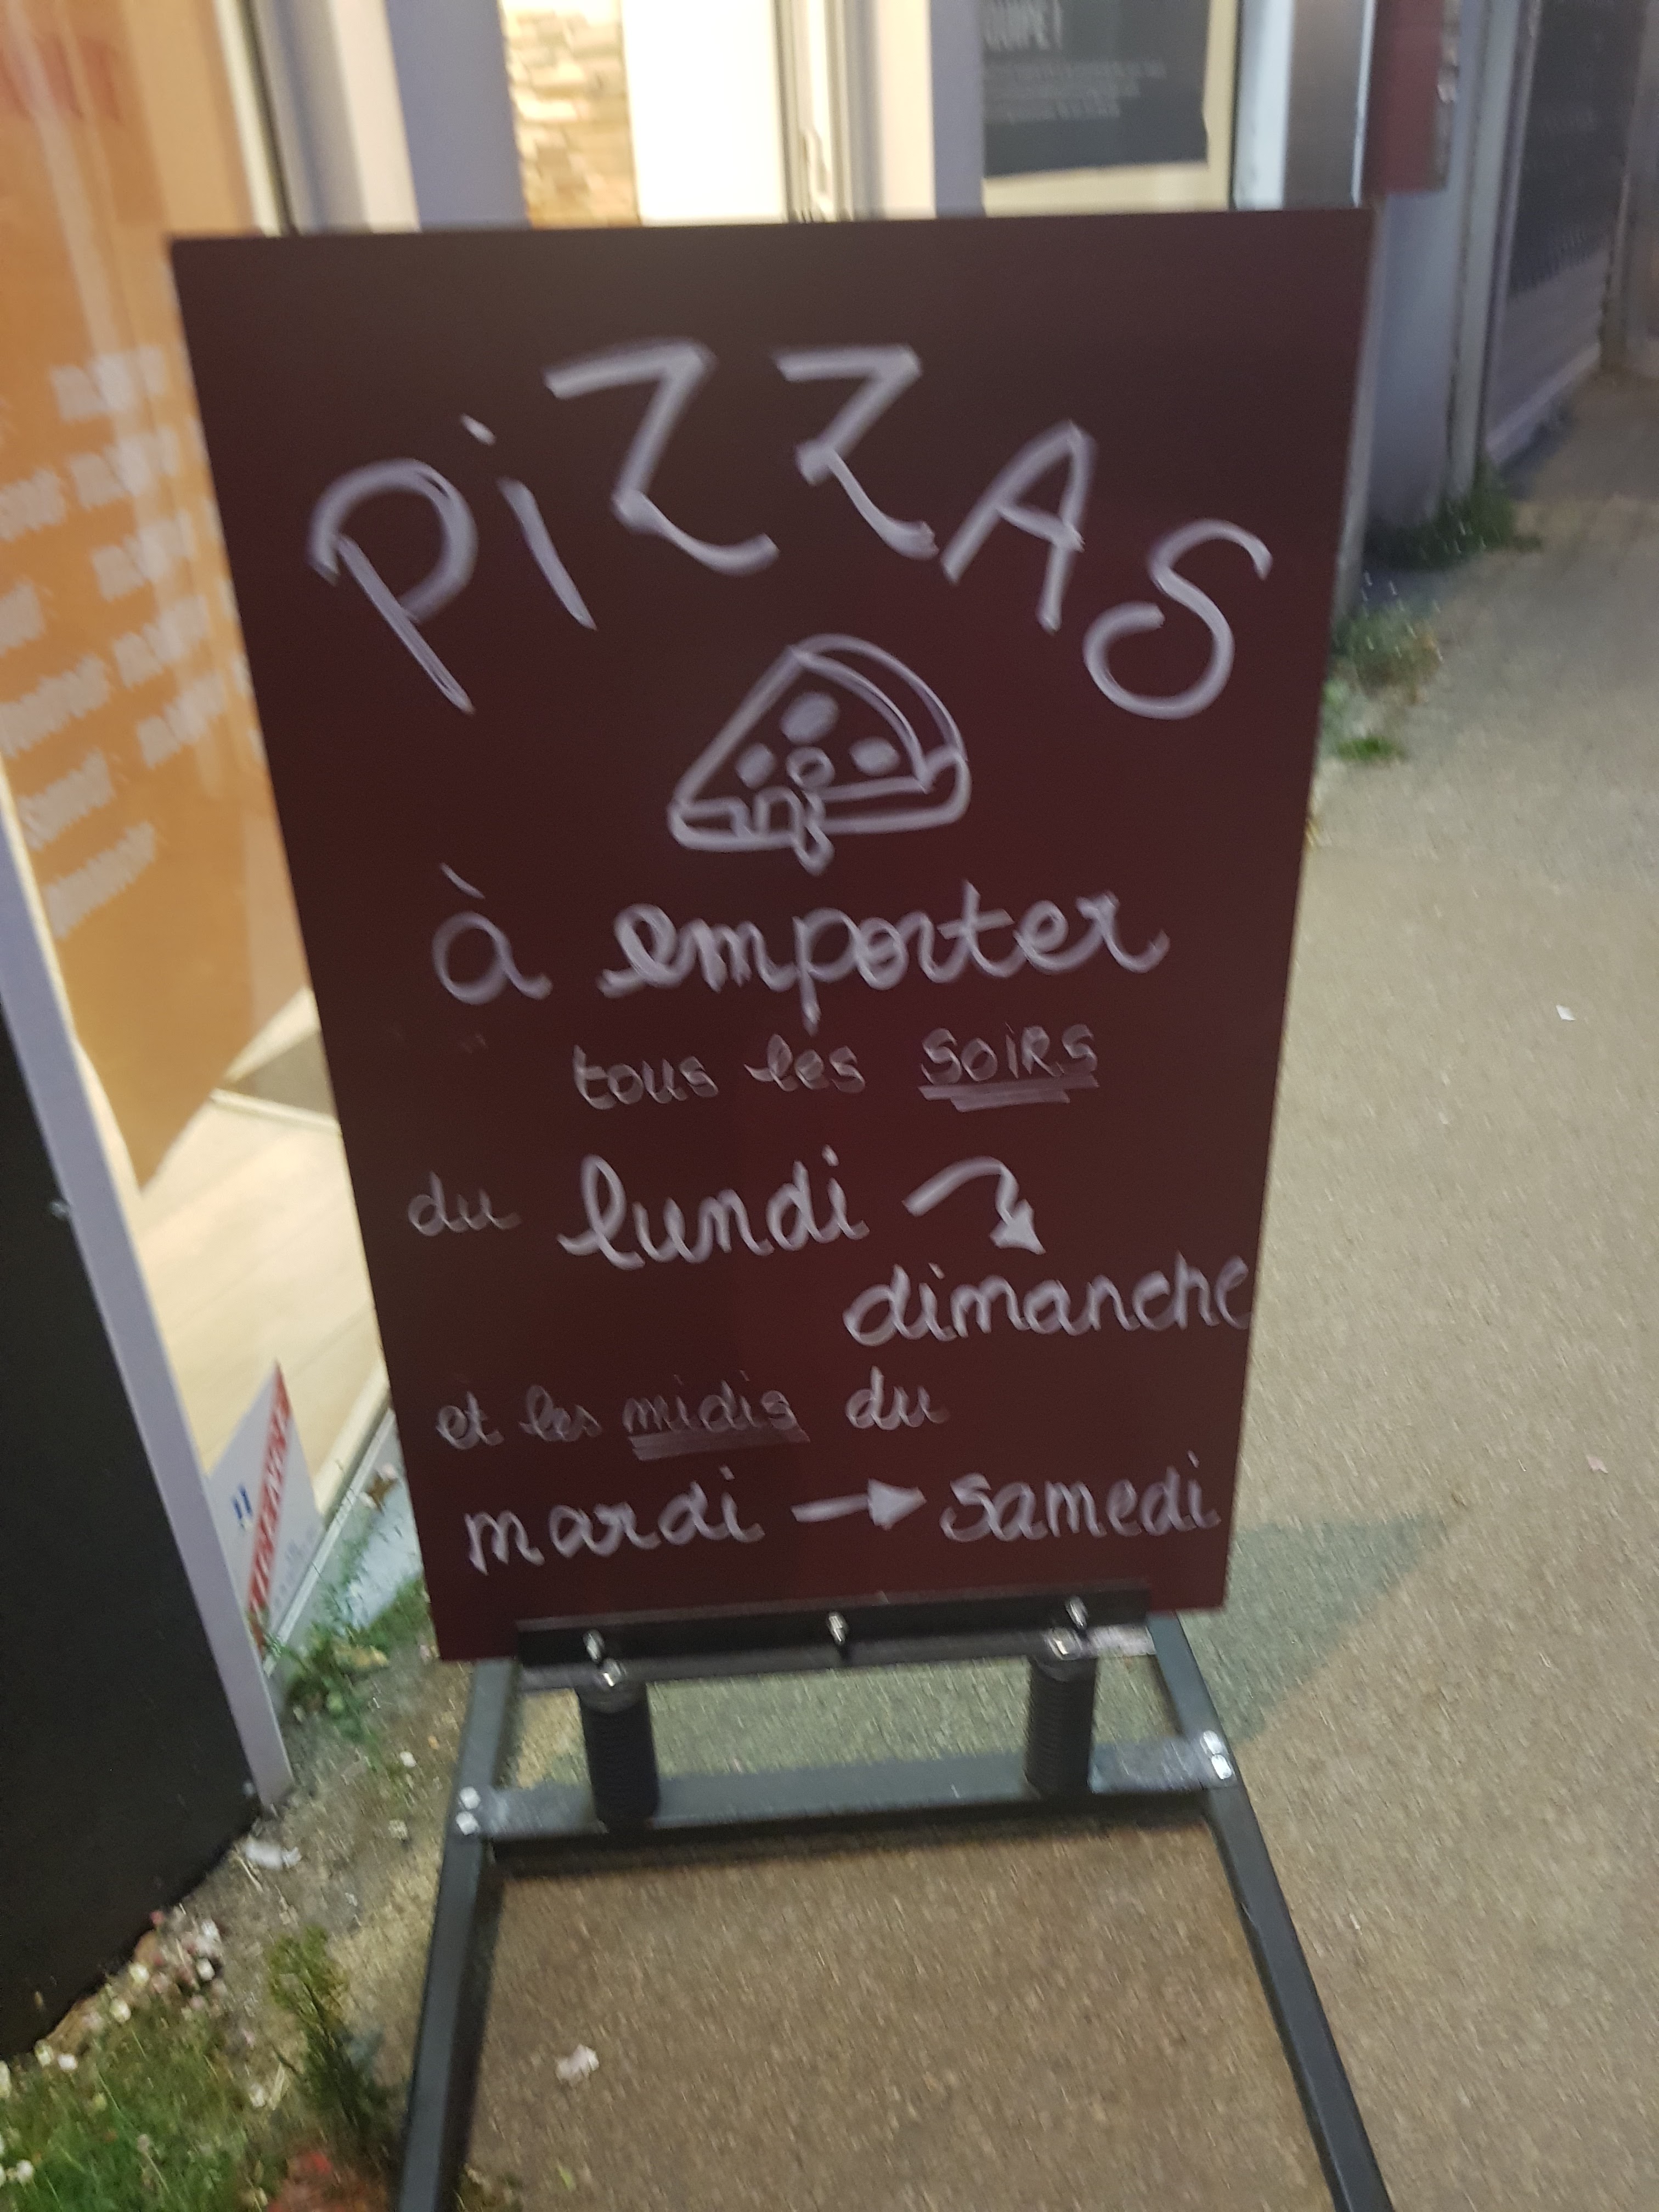 PiZZAS
à emporter
tous les SOIRS
du lundi
dimanche
et les midis du
mardi → samedi